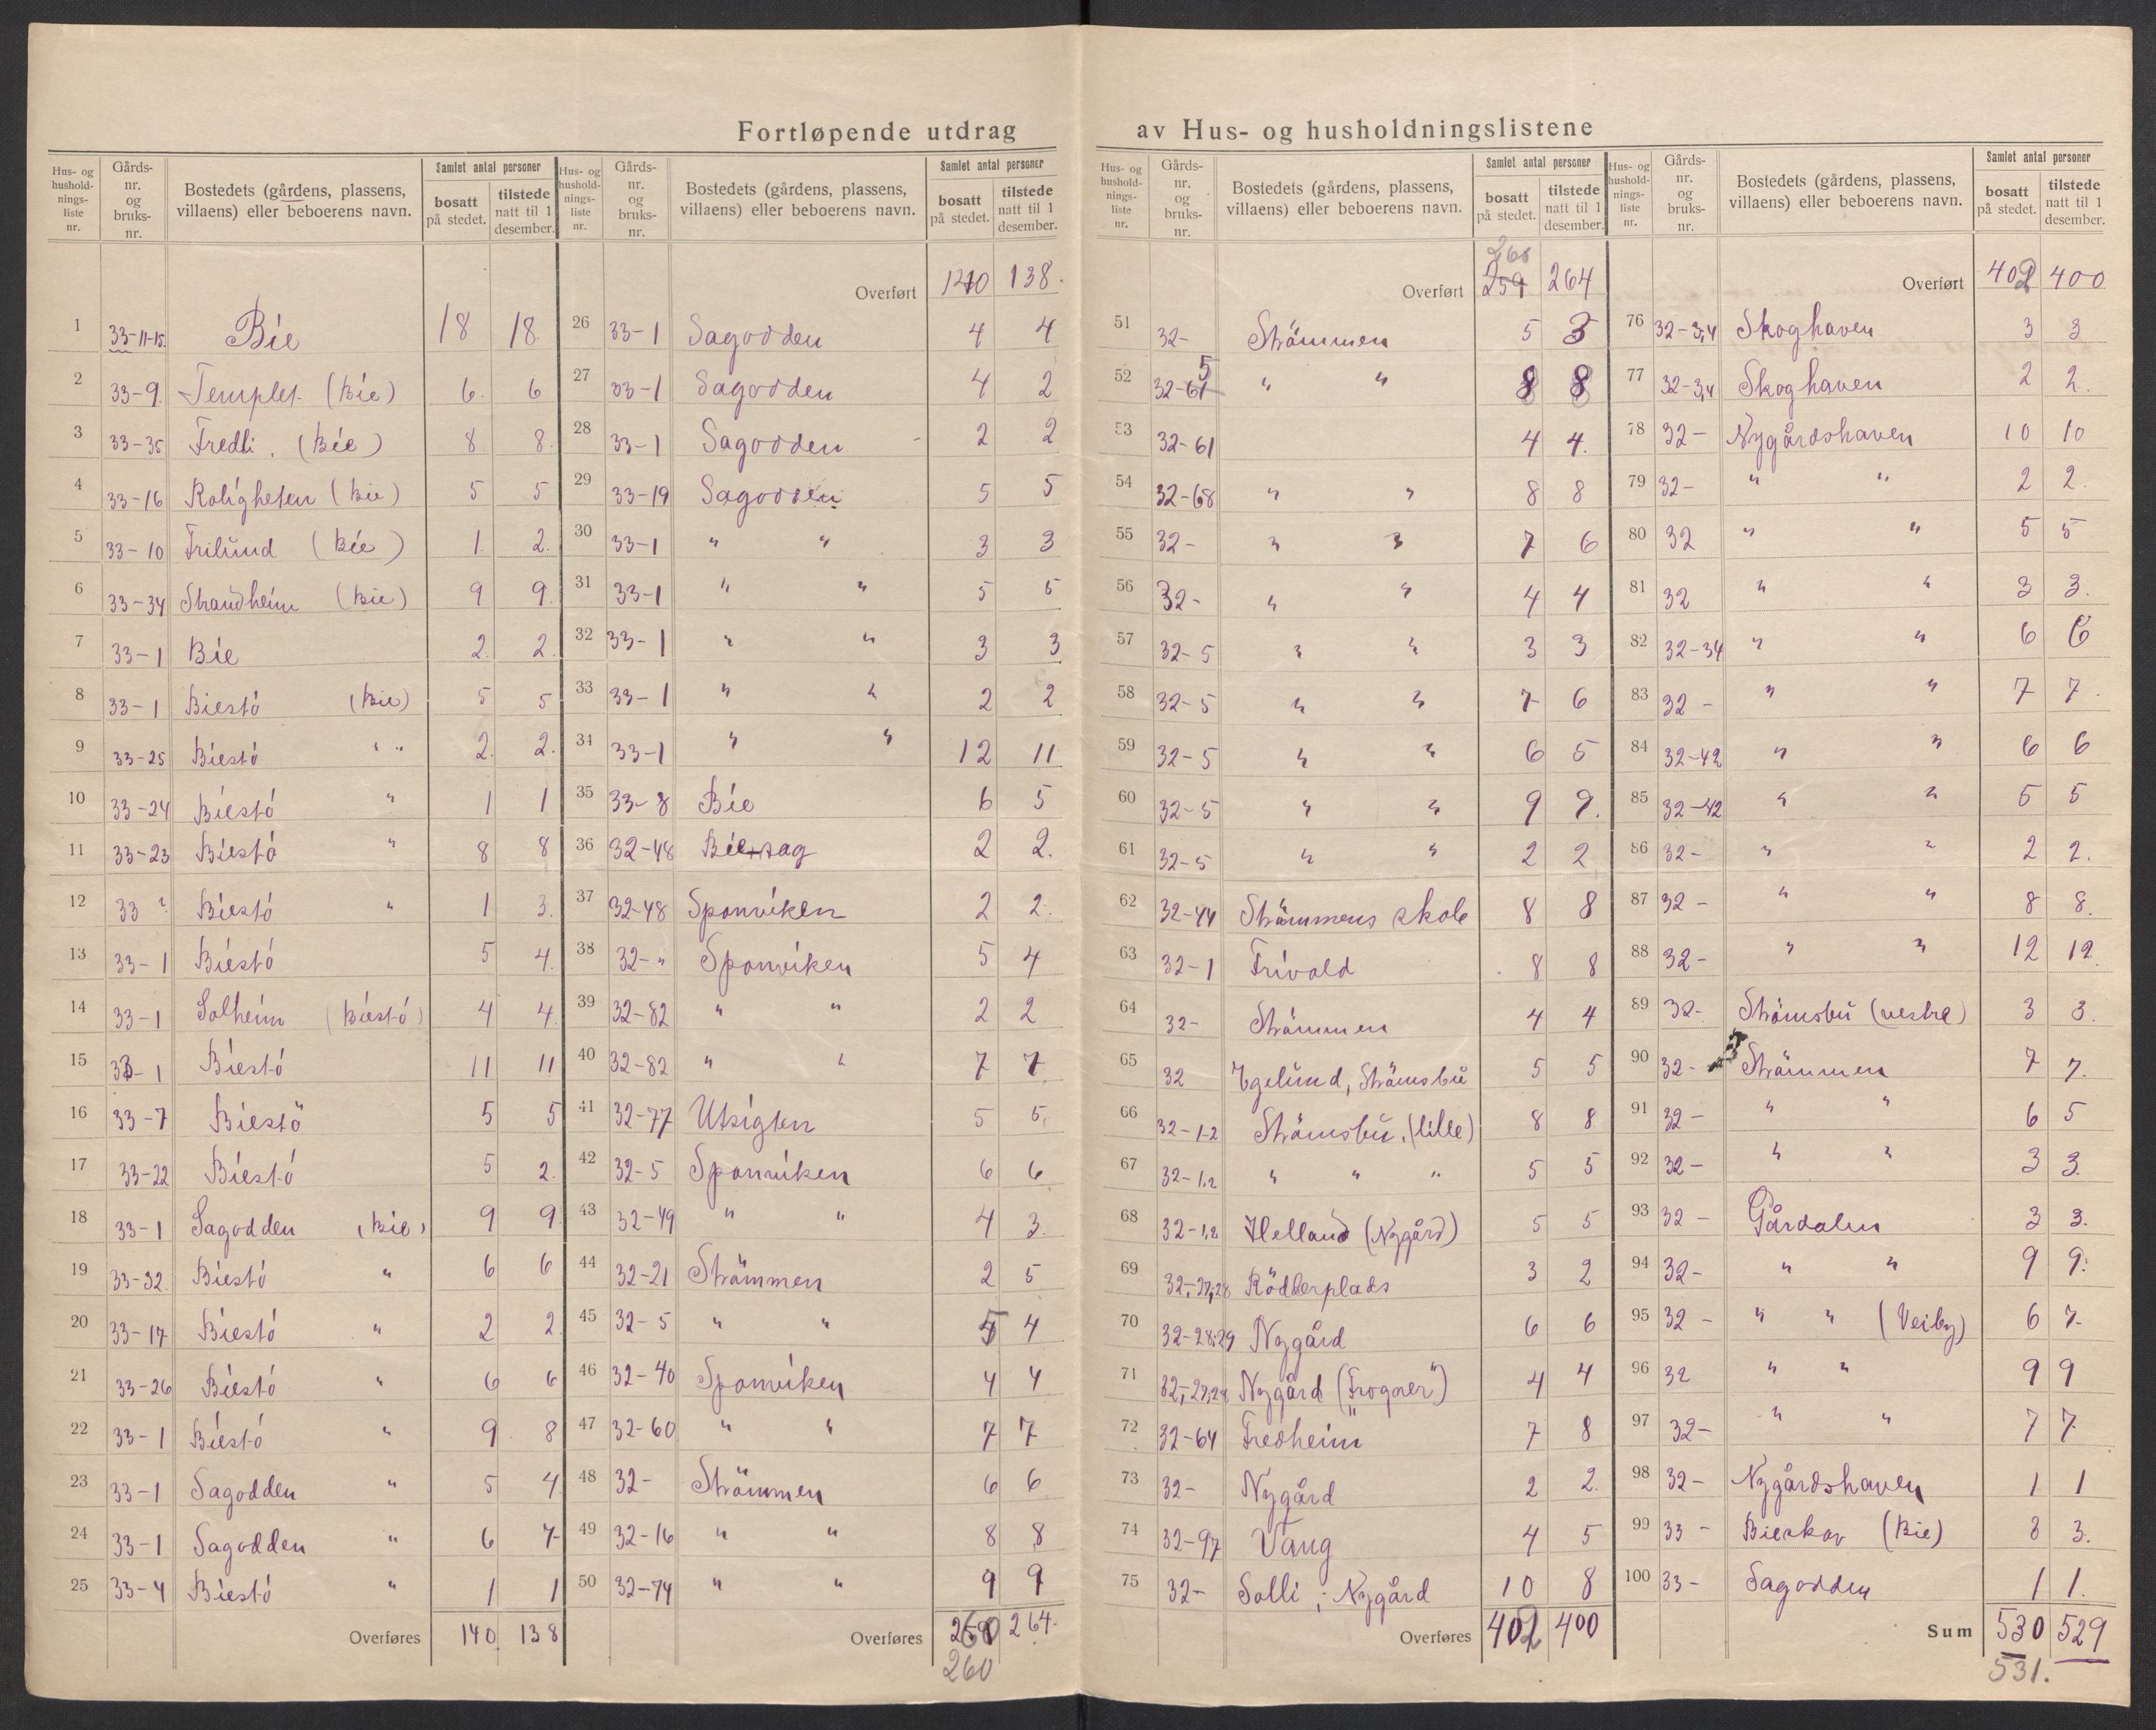 Fortløpende utdrag av Hus- og husholdningslistene
Hus- og husholdnings-liste nr. | Gårds-nr. og bruks-nr. | Bostedets (gårdens, plassens, villaens) eller beboerens navn. | Samlet antal personer | bosatt på stedet. | tilstede natt til 1 desember.
1 33-11-15. Bie 18 18
2 33-9. Templet (Bie) 6. 6
3 33-35 Fredli. (Bie) 8 8.
4 33-16 Roligheten (Bie) 5 5
5 33-10 Frilund (Bie) 1. 2.
6 33-34 Strandheim (Bie) 9 9.
7 33-1 Bie 2. 2.
8 33-1 Biestö (Bie) 5 5
9 33-25 Biestö " " 2. 2.
10 33-24 Biestö " 1 1
11 33-23 Biestö " 8 8
12 33 ? Biestö " 1 3.
13 33-1 Biestö 5 4.
14 33-1 Solheim (Biestö) 4 4
15 33-1 Biestö 11 11
16 33-7 Biestö 5 5
17 33-22 Biestö 5 2.
18 33-1 Sagodden (Bie) 9 9
19 33-32. Biestö " 6 6
20 33-17 Biestö " 2 2
21 33-26 Biestö " 6 6
22 33-1 Biestö " 9. 8
23 33-1 Sagodden " 5 4
24 33-1 Sagodden " 6 7
25 33-4 Biestö " 1 1
Overføres 140 138
Hus- og husholdnings-liste nr. | Gårds-nr. og bruks-nr. | Bostedets (gårdens, plassens, villaens) eller beboerens navn. | Samlet antal personer | bosatt på stedet. | tilstede natt til 1 desember.
Overført 140 138.
26 33-1 Sagodden 4 4
27 33-1 Sagodden 4 2
28 33-1 Sagodden 2 2
29 33-19 Sagodden 5 5
30 33-1 " " 3 3
31 33-1 " " 5 5
32 33-1 " " 3 3
33 33-1 " " 2 2
34 33-1 " " 12 11
35 33-8 Bie 6 5
36 32-48 Bie sag 2 2.
37 32-48 Sponviken 2 2.
38 32-" Sponviken 5 4
39 32-82 " " 2 2
40 32-82 " " 7 7
41 32-77 Utsigten 5 5.
42 32-5 Sponviken 6 6
43 32-49 " " 4 3.
44 32-21 Strömmen 2 5
45 32-5 " " 5 4
46 32-40 Sponviken 4 4
47 32-60 " " 7 7
48 32- Strömmen 6 6
49 32-16 " " 8 8
50 32-74 " " 9 9
Overføres 260 264.
260
Hus- og husholdnings-liste nr. | Gårds-nr. og bruks-nr. | Bostedets (gårdens, plassens, villaens) eller beboerens navn. | Samlet antal personer | bosatt på stedet. | tilstede natt til 1 desember.
260
Overført 259 264
51 32- Strömmen 5 3
52 32-61 5 " " 8 8
53 32-61 4 4.
54 32-68 " " 8 8
55 32- " " 7 6
56 32- " " 4 4
57 32-5 " " 3 3
58 32-5 " " 7 6
59 32-5 " " 6 5
60 32-5 " " 9 9.
61 32-5 " " 2 2
62 32-44 Strömmens skole 8 8
63 32-1 Trivold 8 8
64 32- Strömmen 4 4
65 32 Egelund, Strömsbu 5 5
66 32-1-2 Strömsbu. (lille) 8 8
67 32-1,2 " " " 5 5
68 32-1,2 Helland (Nygård) 5 5
69 32,-27,28 Rödberplads 3 2
70 32-28,29 Nygård 6 6
71 32,-27,28 Nygård ("Frogner") 4 4
72 32-64 Fredheim 7 8
73 32- Nygård 2 2.
74 32-97 Vang 4 5
75 32- Solli ; Nygård 10 8
Overføres 402 400
Hus- og husholdnings-liste nr. | Gårds-nr. og bruks-nr. | Bostedets (gårdens, plassens, villaens) eller beboerens navn. | Samlet antal personer | bosatt på stedet. | tilstede natt til 1 desember.
Overført 402 400
76 32-3,4 Skoghaven 3 3
77 32-3,4 Skoghaven 2 2.
78 32- Nygårdshaven 10 10
79 32- " " 2 2.
80 32 " " 5 5
81 32 " " 3 3.
82 32-34 " " 6 6
83 32- " " 7 7.
84 32-42 " " 6 6
85 32-42 " " 5 5
86 32- " " 2 2.
87 32- " " 8 8.
88 32- " " 12 12.
89 32- Strömsbu (vestre) 3 3.
90 32- Strömmen 7 7.
91 32- " " 6 5
92 32- " " 3 3.
93 32- Gårdalen 3 3.
94 32- " " 9 9.
95 32- " " (Veiby) 6 7
96 32 " " 9 9
97 32- " " 7 7
98 32- Nygårdshaven 1 1
99 33- Bieskov (Bie) 3 3.
100 33- Sagodden 1 1.
Sum 530 529
531.